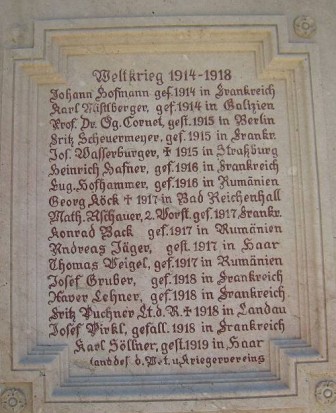 Weltkrieg 1914-1918
Johann Hofmann gef. 1914 in Frankreich
Karl Nästlberger, gef. 1914 in Galizien
Prof. Dr. Gg. Cornet, gest. 1915 in Berlin
Fritz Scheuermeyer, gef. 1915 in Frankr.
Jos. Wasserburger, ✝ 1915 in Straßburg
Heinrich Hafner, gef. 1916 in Frankreich
Eug. Hofhammer, gef. 1916 in Rumänien
Georg Köck ✝ 1917 in Bad Reichenhall
Math. Aschauer, 2. Vorst. gef. 1917 Frankr.
Konrad Back gef. 1917 in Rumänien
Andreas Jäger, gest. 1917 in Haar
Thomas Veigel, gef. 1917 in Rumänien
Josef Gruber, gef. 1918 in Frankreich
Xaver Lehner, gef. 1918 in Frankreich
Fritz Puchner Lt. d. R. ✝ 1918 in Landau
Josef Pirkl, gefall. 1918 in Frankreich
Karl Söllner, gest. 1919 in Haar
d. Vet. u. Kriegervereins